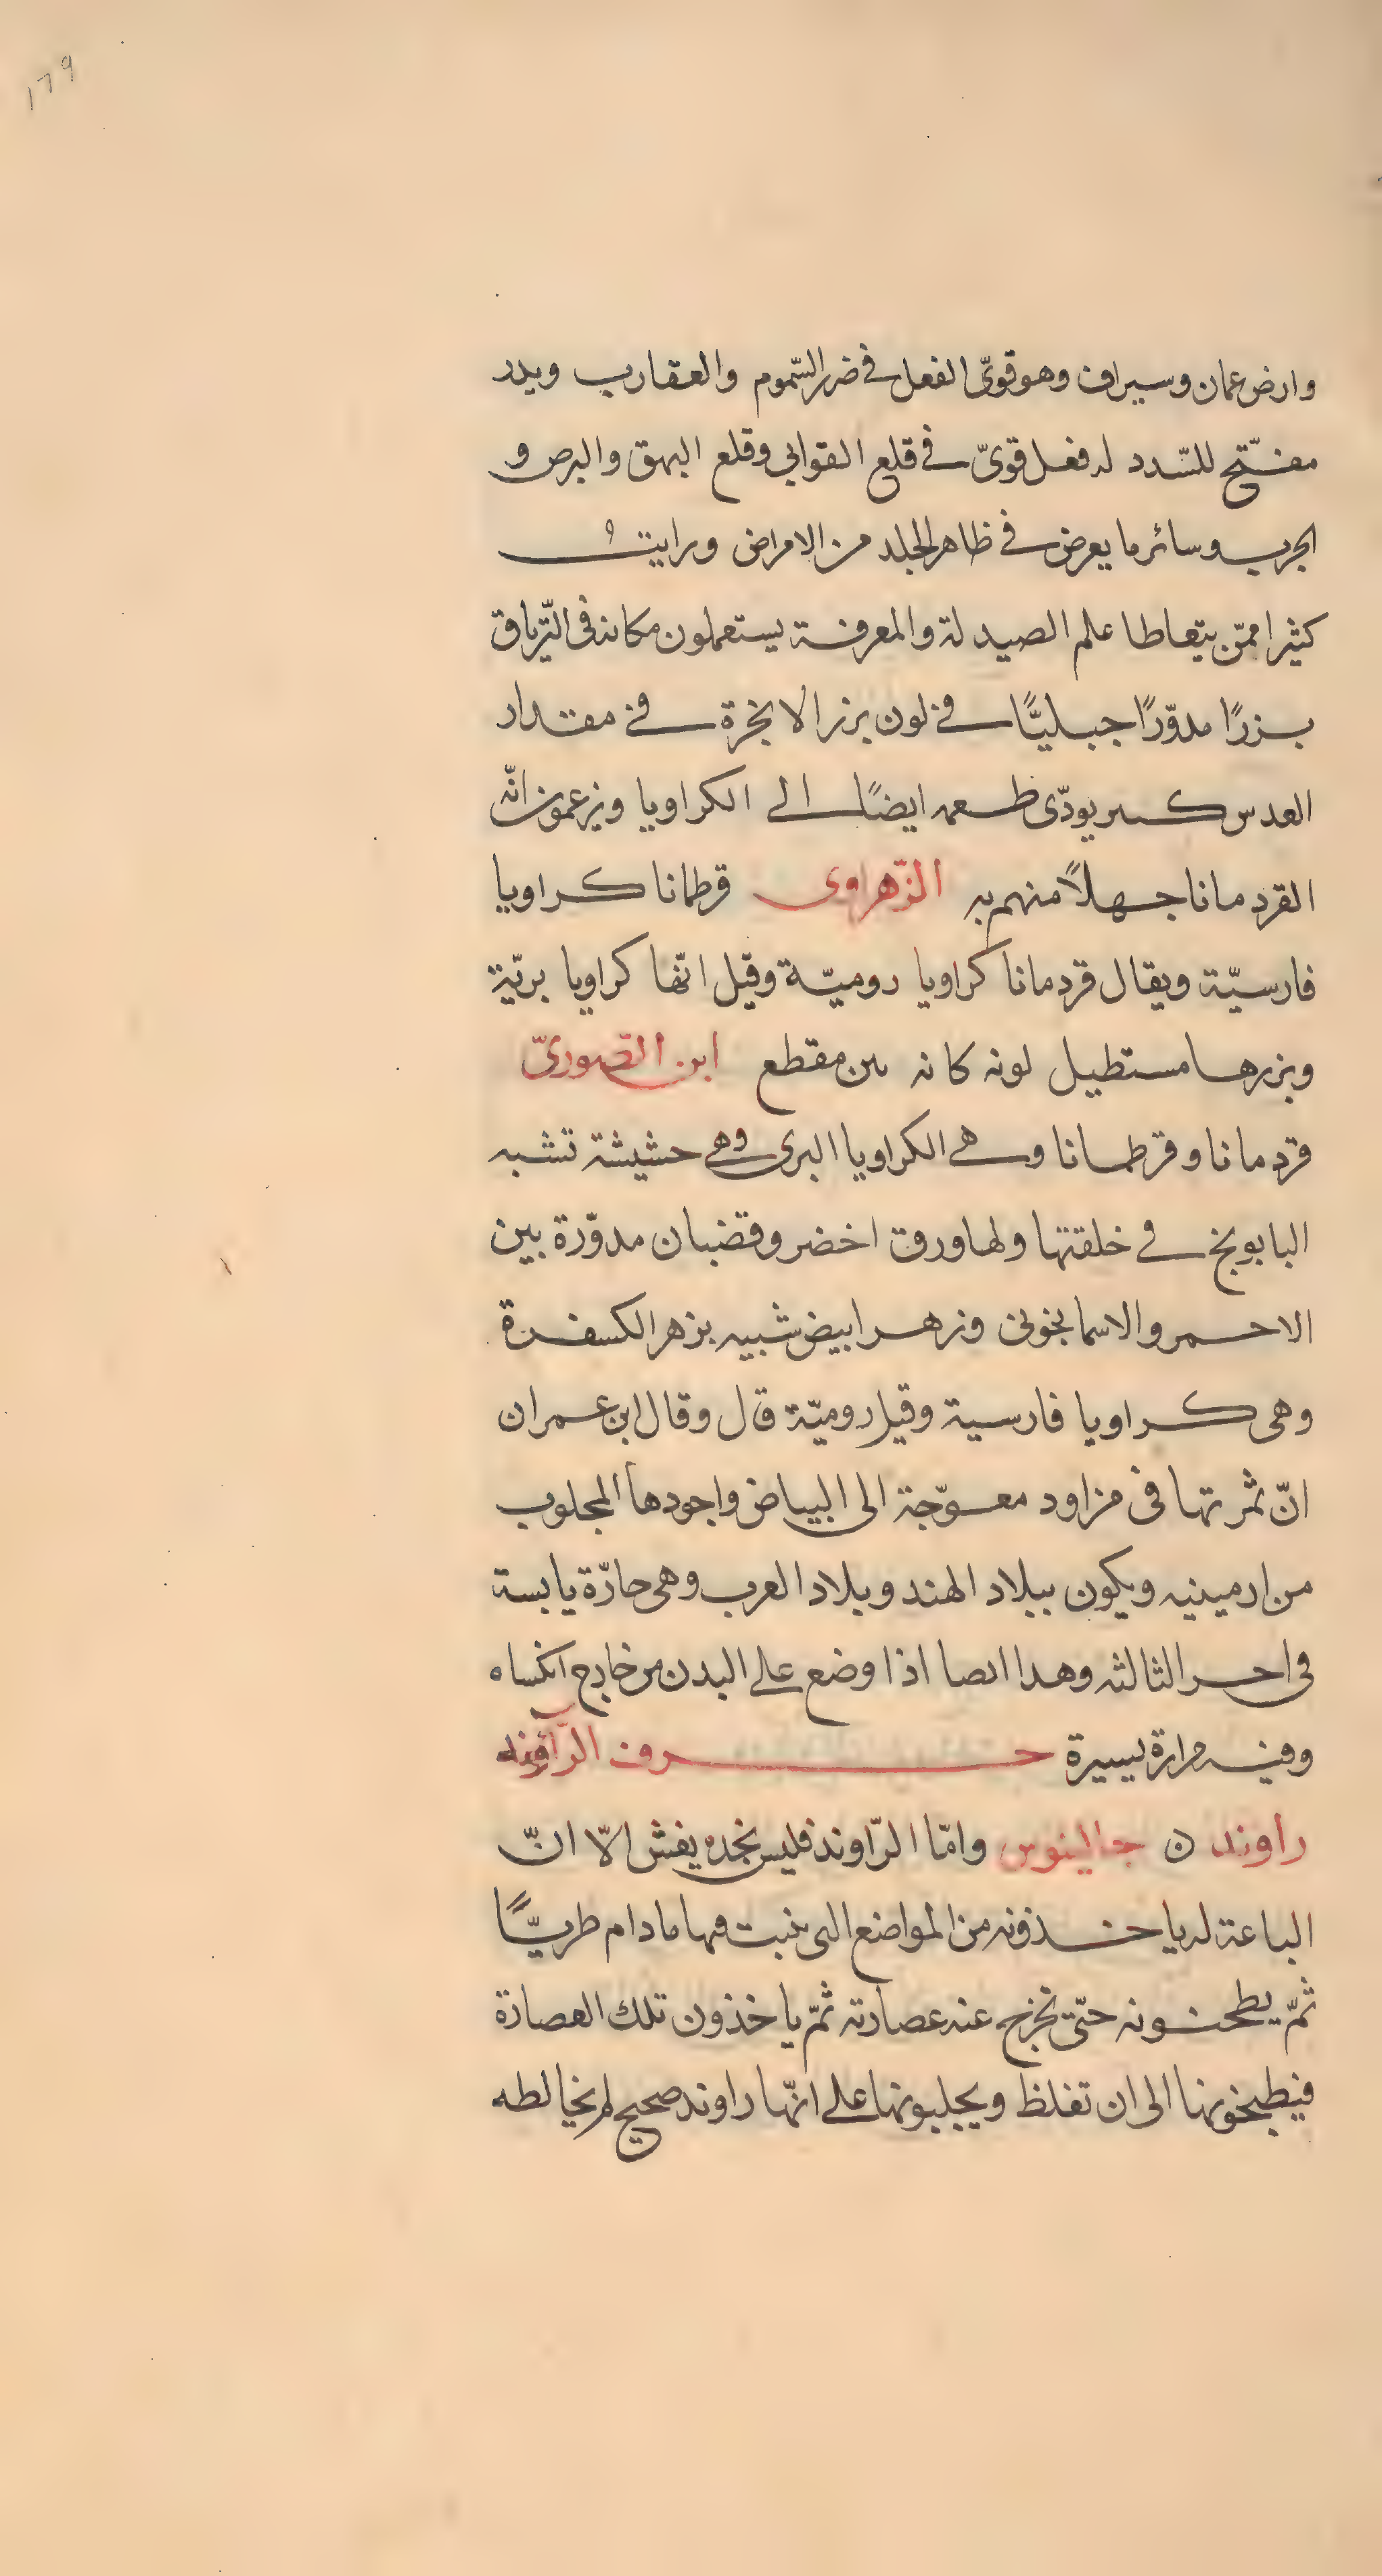 ١٦٩
وارض عمان وسيراف وهو قوىّ الفعل فى ضرر السّموم والعقارب ويدر
مفتّح للسّدد له فعل قوىّ فى قلع القوابى وقلع البهق والبرص و
الجرب وسائر ما يعرض فى ظاهر الجلد من الامراض ورايت
كثيرا ممّن يتعاطا علم الصيدلة والمعرفة يستعملون مكانه فى التّرياق
بزرًا مدوّرًا جبليًّا فى لون بزر الانجرة فى مقدار
العدس يودّى طعمه ايضًا الى الكراويا ويزعمون انّه
القردمانا جهلاً منهم به الزّهراوى قرطمانا كراويا
فارسيّة ويقال قردمانا كراويا روميّة وقيل انّها كراويا بريّة
وبزرها مستطيل لونه كانه تبن مقطع ابن الصّورىّ
قردمانا وقرطمانا وهى الكراويا البرى وهى حشيشة تشبه
البابونج فى خلقتها ولها ورق اخضر وقضبان مدوّرة بين
الاحمر والاسمانجونى وزهر ابيض شبيه بزهر الكسفرة
وهى كراويا فارسية وقيل روميّة قال وقال ابن عمران
انّ ثمرتها فى مزاود معوّجة الى البياض واجودها المجلوب
من ارمينيه ويكون ببلاد الهند وبلاد العرب وهى حارّة يابسة
فى احر الثالثه وهدا ايصا اذا وضع على البدن من خارج انكساه
وفيه مرارة يسيرة حرف الرّآء
راوند ن جالينوس وامّا الرّاوند فليس نجده يغش الّا انّ
الباعة له ياخذونه من المواضع التى ينبت فيها مادام طريًّا
ثمّ يطحنونه حتّى تخرج عنه عصارته ثمّ ياخذون تلك العصارة
فيطبخونها الى ان تغلظ ويجلبونها على انّها راوند صحيح لم يخالطه